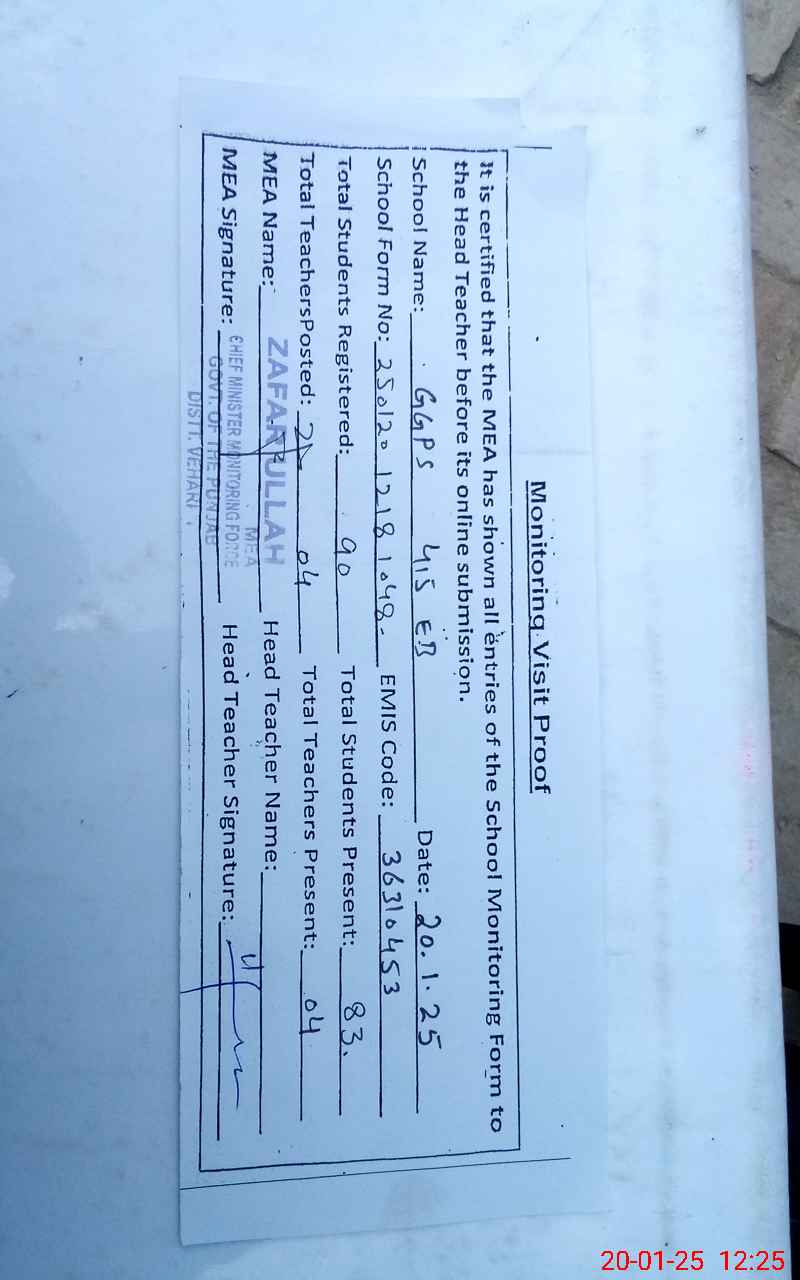 Monitoring Visit Proof
It is certified that the MEA has shown all entries of the School Monitoring Form to
the Head Teacher before its online submission.
School Name: GGPS 415 EB Date: 20.1.25
School Form No: 250120 1218 1048. EMIS Code: 36310453
Total Students Registered: 90 Total Students Present: 83.
Total TeachersPosted: 04 Total Teachers Present: 04
MEA Name: ZAFAR ULLAH Head Teacher Name:
MEA
CHIEF MINISTER MONITORING FORCE
MEA Signature: GOVT. OF THE PUNJAB Head Teacher Signature:
DISTT. VEHARI.
20-01-25 12:25